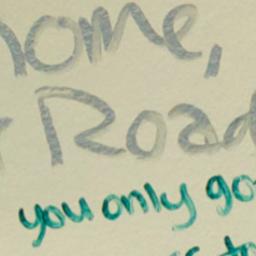 home,
Road
you only go